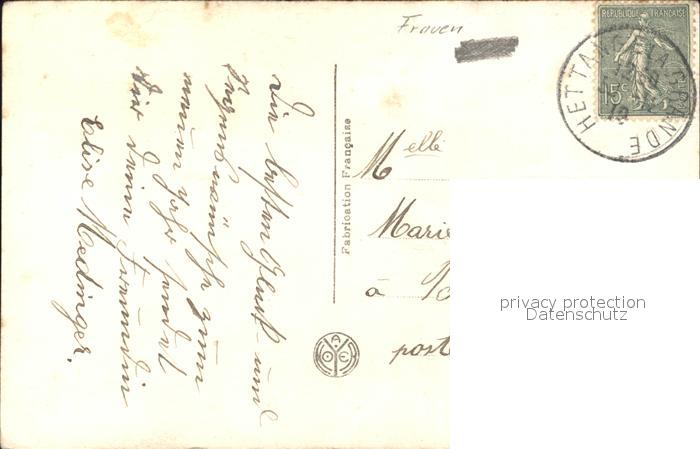 Frauen
REPUBLIQUE FRANÇAISE
15c
HETTANGE LA GRANDE
Die besten Glück- und
Segenswünsche zum
neuen Jahr sendet
Dir deine Freundin
Elise Medinger.
Fabrication Française
Melle
Marie
à
post
privacy protection
Datenschutz